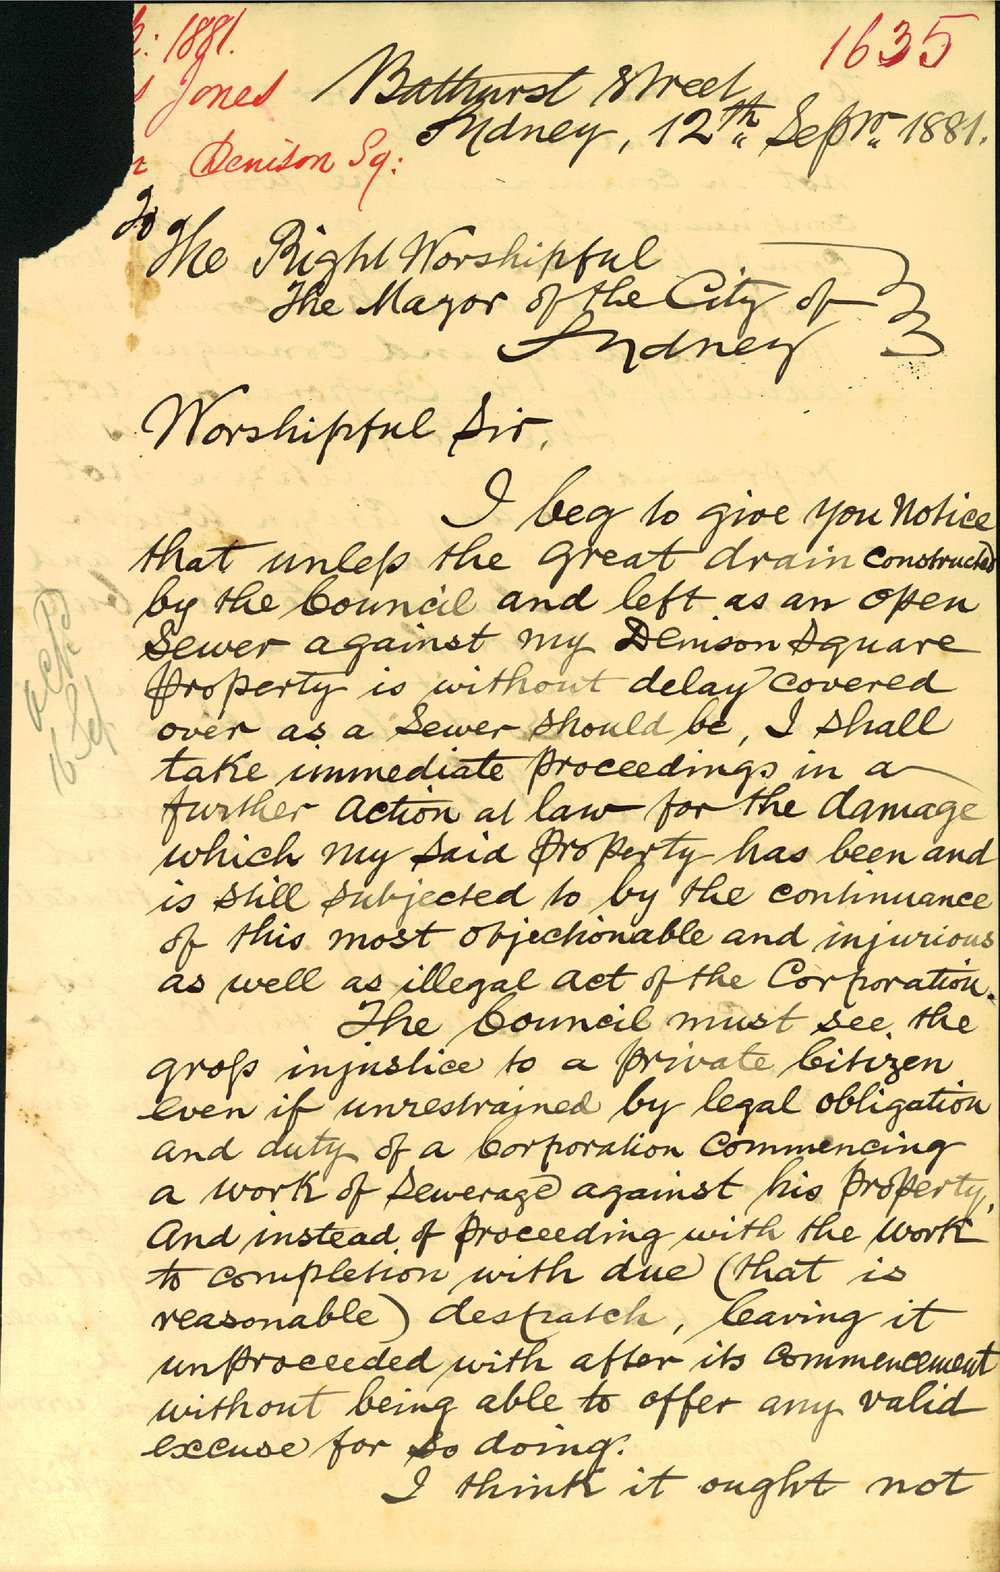 : 1881.
1635
Jones
Denison Sq:
Bathurst Street
Sydney, 12th Sepr. 1881.
To
The Right Worshipful
The Mayor of the City of
Sydney
Worshipful Sir,
I beg to give you Notice
that unless the great drain constructed
by the Council and left as an open
Sewer against my Denison Square
property is without delay covered
over as a Sewer should be, I shall
take immediate proceedings in a
further action at law for the damage
which my said property has been and
is still subjected to by the continuance
of this most objectionable and injurious
as well as illegal act of the Corporation.
The Council must see the
gross injustice to a private Citizen
even if unrestrained by legal obligation
and duty of a Corporation commencing
a work of Sewerage against his property,
And instead of proceeding with the work
to completion with due (that is
reasonable) despatch, leaving it
unproceeded with after its commencement
without being able to offer any valid
excuse for so doing.
I think it ought not
ackd
16 Sep